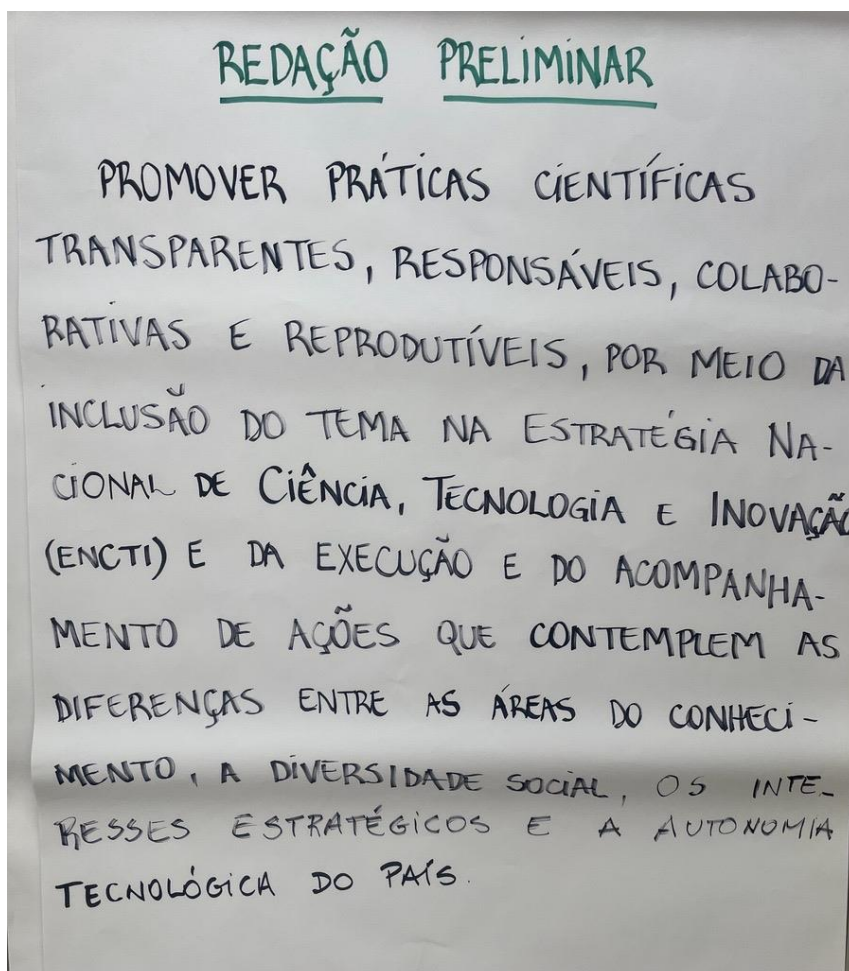 REDAÇÃO PRELIMINAR
PROMOVER PRÁTICAS CIENTÍFICAS
TRANSPARENTES, RESPONSÁVEIS, COLABO-
RATIVAS E REPRODUTÍVEIS, POR MEIO DA
INCLUSÃO DO TEMA NA ESTRATÉGIA NA-
CIONAL DE CIÊNCIA, TECNOLOGIA E INOVAÇÃO
(ENCTI) E DA EXECUÇÃO E DO ACOMPANHA-
MENTO DE AÇÕES QUE CONTEMPLEM AS
DIFERENÇAS ENTRE AS ÁREAS DO CONHECI-
MENTO, A DIVERSIDADE SOCIAL, OS INTE-
RESSES ESTRATÉGICOS E A AUTONOMIA
TECNOLÓGICA DO PAÍS.